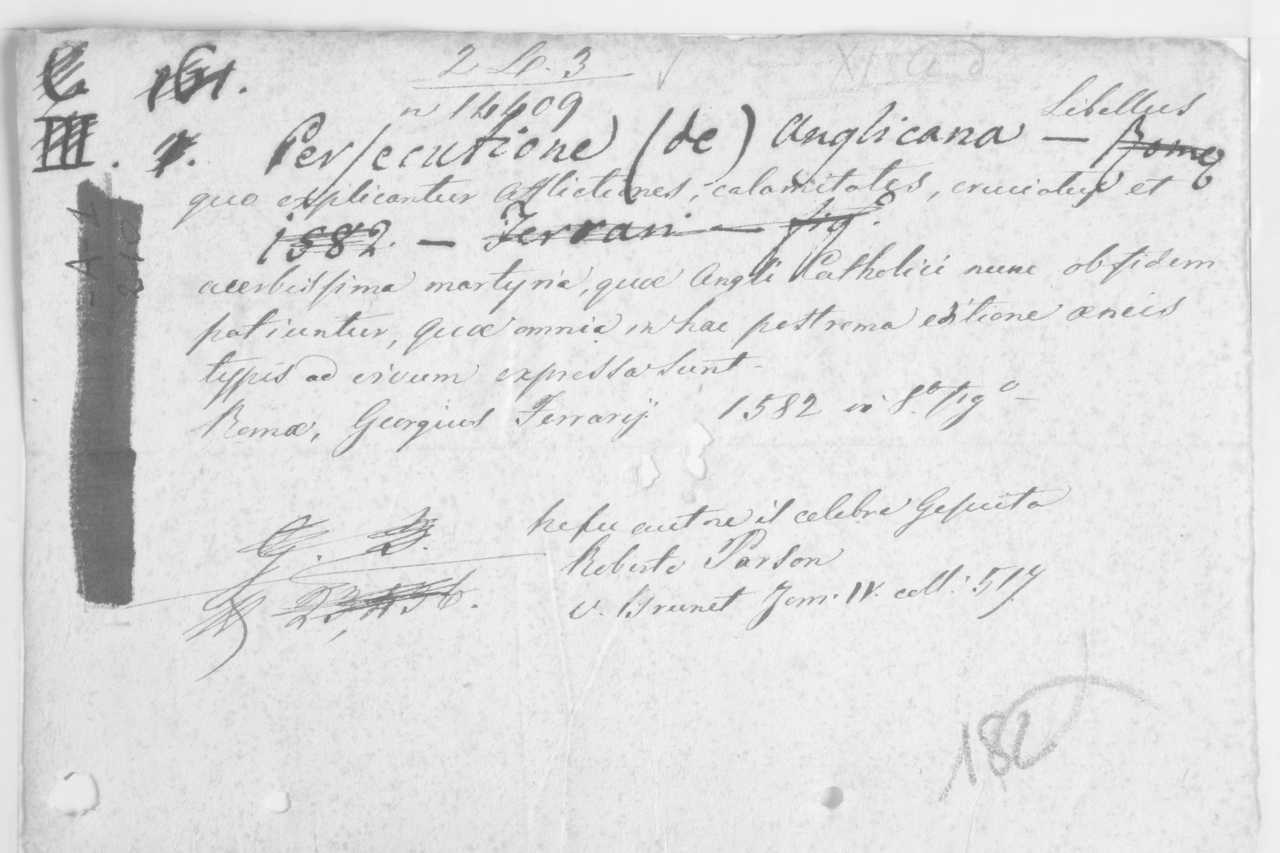 2 L. 3
n 14409
III. 7. Persecutione (de) Anglicana — Libellus Romæ
quo explicantur afflictiones, calamitates, cruciatus et
1582. — Ferrari — fig.º
acerbissima martyria, quæ Angli Catholici nunc ob fidem
patiuntur, quæ omnia in hac postrema editione æneis
typis ad vivum expressa sunt.
Romæ, Georgius Ferrarij 1582 in 8.º fig.º
G. B.
ne fu autore il celebre Gesuita
Roberto Parson
v. Brunet Tom. IV. coll. 517
182